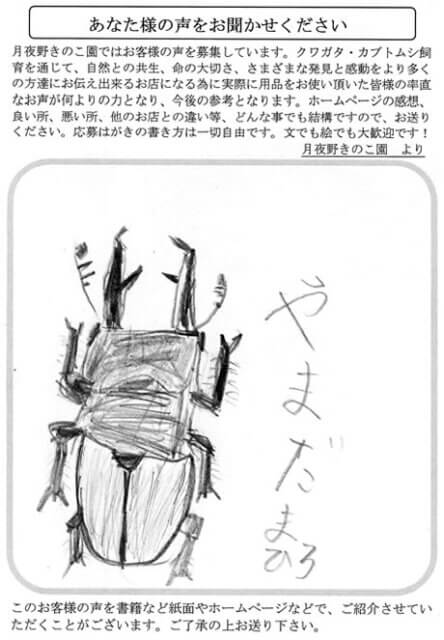 あなた様の声をお聞かせください
月夜野きのこ園ではお客様の声を募集しています。クワガタ・カブトムシ飼
育を通じて、自然との共生、命の大切さ、さまざまな発見と感動をより多く
の方達にお伝え出来るお店になる為に実際に用品をお使い頂いた皆様の率直
なお声が何よりの力となり、今後の参考となります。ホームページの感想、
良い所、悪い所、他のお店との違い等、どんな事でも結構ですので、お送り
ください。応募はがきの書き方は一切自由です。文でも絵でも大歓迎です！
月夜野きのこ園　より
やまだまひろ
このお客様の声を書籍など紙面やホームページなどで、ご紹介させてい
ただくことがございます。ご了承の上お送り下さい。